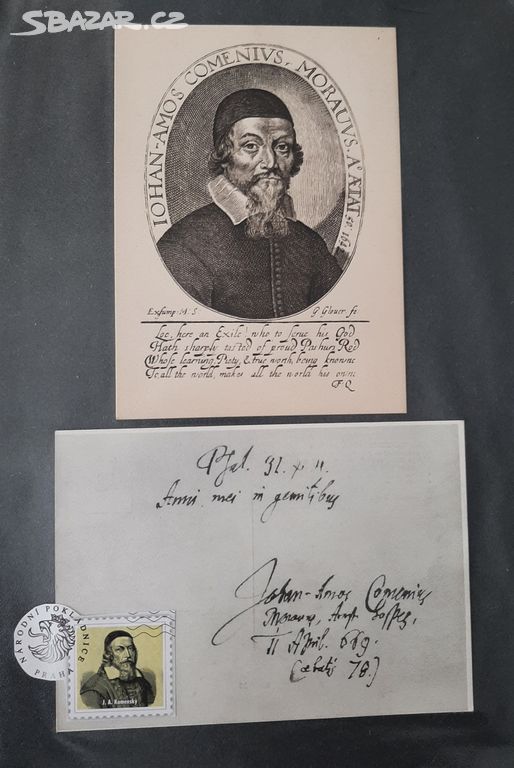 SBAZAR.CZ
IOHAN-AMOS COMENIVS, MORAVVS. Aº ÆTAT
Exsump: M. S. G. Glouer fe
Loe, here an Exile who to serue his God
Hath sharply tasted of proud Pashurs Rod
Whose learning, Piety, & true worth, being knowne
To all the world, makes all the world his owne
F Q
Psal. 31. v. 11.
Anni mei in gemitibus
Johan-Amos Comenius
Moravus,
11 April. 669.
(ætatis 78.)
NÁRODNÍ POKLADNICE
PRAHA
J. A. Komenský